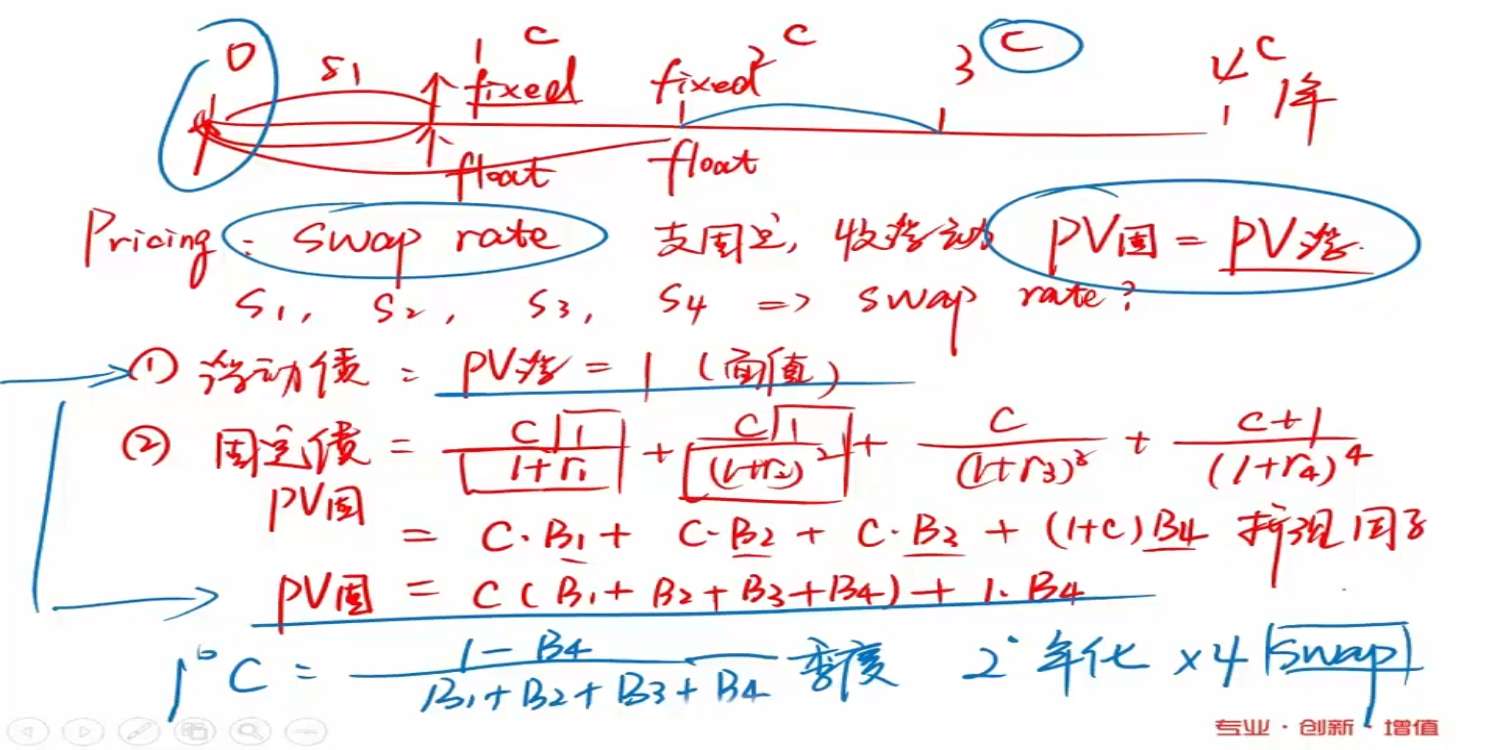 0 S1 1 C 2 C 3 C 4 C
fixed fixed 1年
float float
Pricing: swap rate 支固定, 收浮动 PV固 = PV浮.
S1, S2, S3, S4 => swap rate?
① 浮动债 = PV浮 = 1 (面值)
② 固定债 = C 1/(1+r1) + C 1/(1+r2)^2 + C/(1+r3)^3 + (C+1)/(1+r4)^4
PV固
= C·B1 + C·B2 + C·B3 + (1+C)B4 折现因子
PV固 = C(B1+B2+B3+B4)+1·B4
1° C = (1-B4)/(B1+B2+B3+B4) 季度 2° 年化 ×4 swap
专业·创新·增值